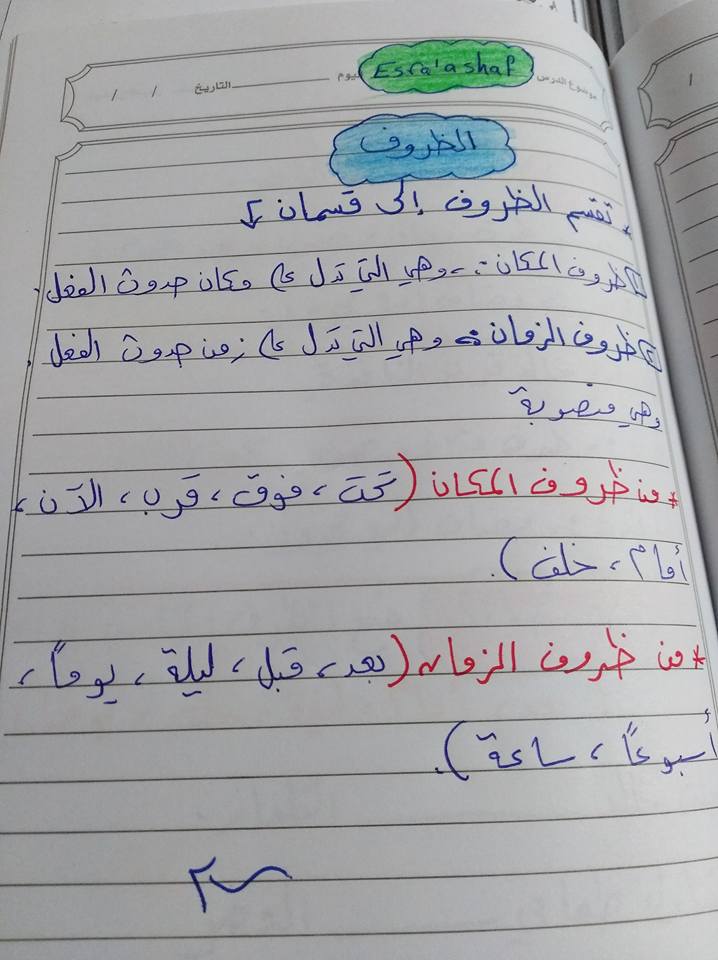 موضوع الدرس Esra'ashaf اليوم التاريخ / /
الظروف
* تقسم الظروف إلى قسمان ↓
1 ظروف المكان :- وهي التي تدل على مكان حدوث الفعل.
2 ظروف الزمان :- وهي التي تدل على زمن حدوث الفعل.
وهي منصوبة
* من ظروف المكان (تحت ، فوق ، قرب ، الآن ،
أمام ، خلف ).
* من ظروف الزمان (بعد ، قبل ، ليلة ، يوماً ،
أسبوعاً ، ساعة ).